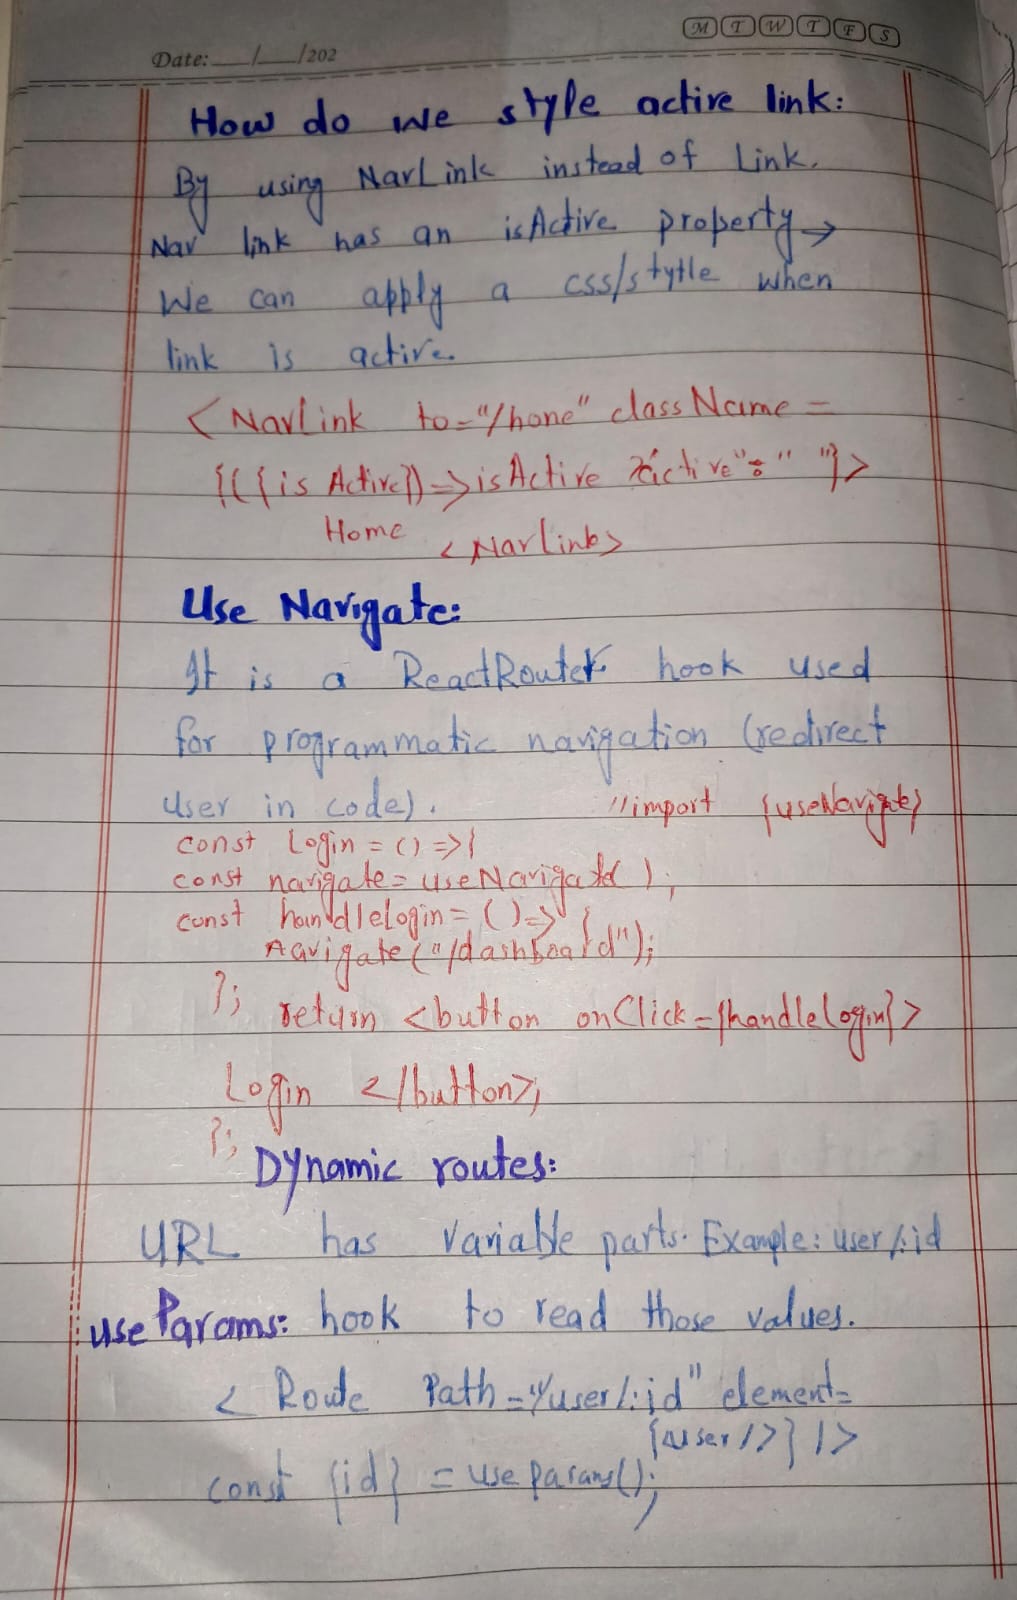 M T W T F S
Date: __/__/202
How do we style active link:
By using NavLink instead of Link.
Nav link has an isActive property →
We can apply a css/stytle when
link is active.
<NavLink to="/home" className =
{({isActive}) => isActive ? "active" : " "}>
Home <NavLink>
Use Navigate:
It is a ReactRouter hook used
for programmatic navigation (redirect
user in code). //import {useNavigate}
const Login = () => {
const navigate = useNavigate( );
const handlelogin = () => {
navigate("/dashboard");
}; return <button onClick={handlelogin}>
Login </button>;
};
Dynamic routes:
URL has variable parts. Example: user/:id
useParams: hook to read those values.
< Route Path="/user/:id" element=
{<User/>} />
const {id} = useparams();